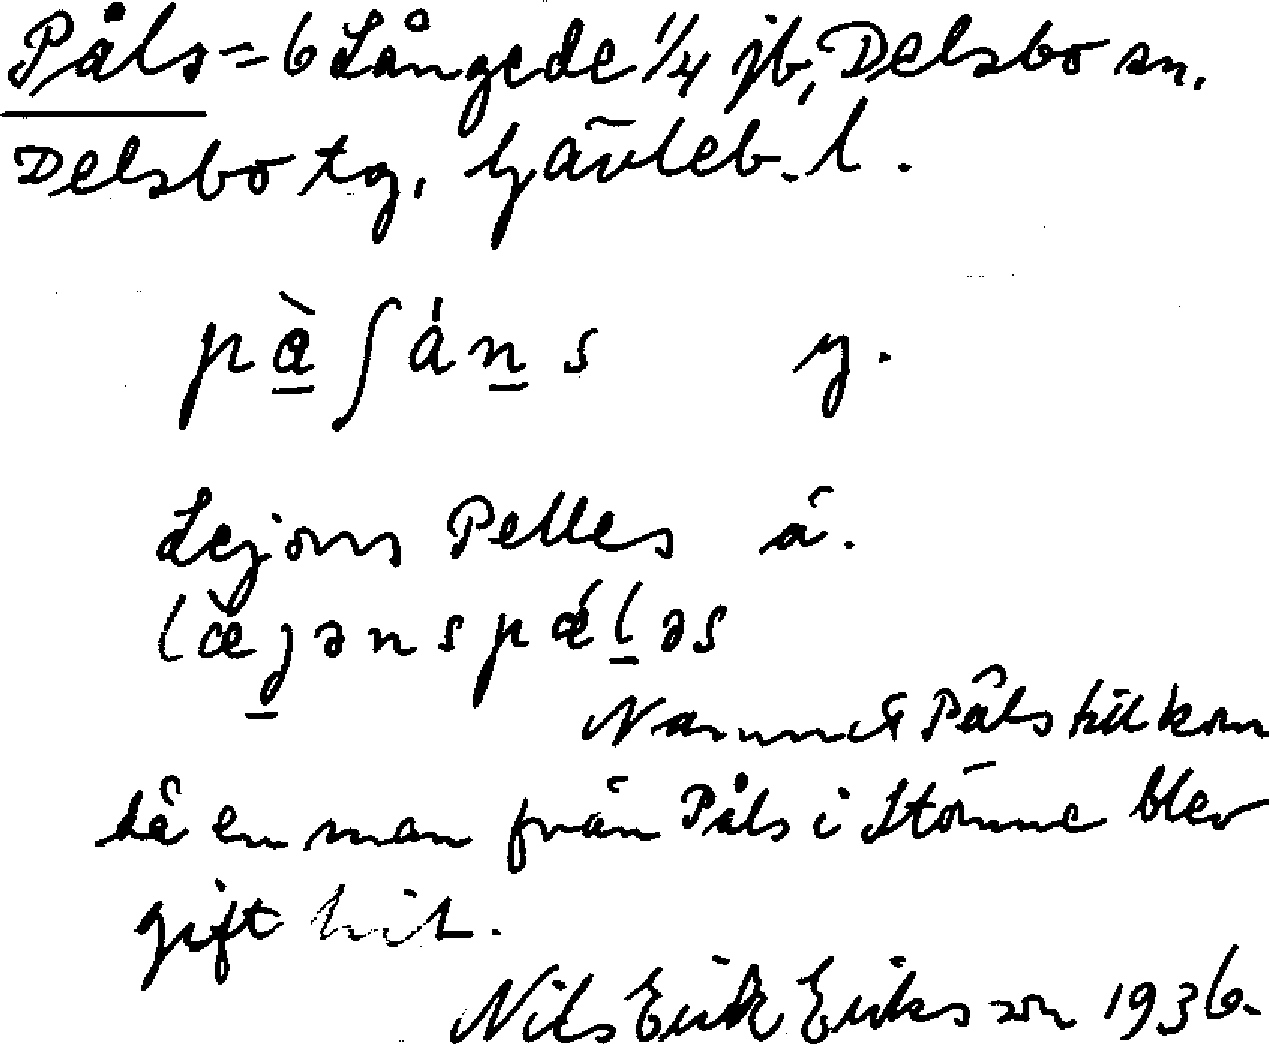 Påls = 6 Långede 1/4 jb, Delsbo sn.
Delsbo tg, Gävleb. l.
pàʃáns y.
Lejons Pelles ä.
læ̀jənspǽləs
Namnet Påls tillkom
då en man från Påls i Stömne blev
gift hit.
Nils Erik Eriksson 1936.